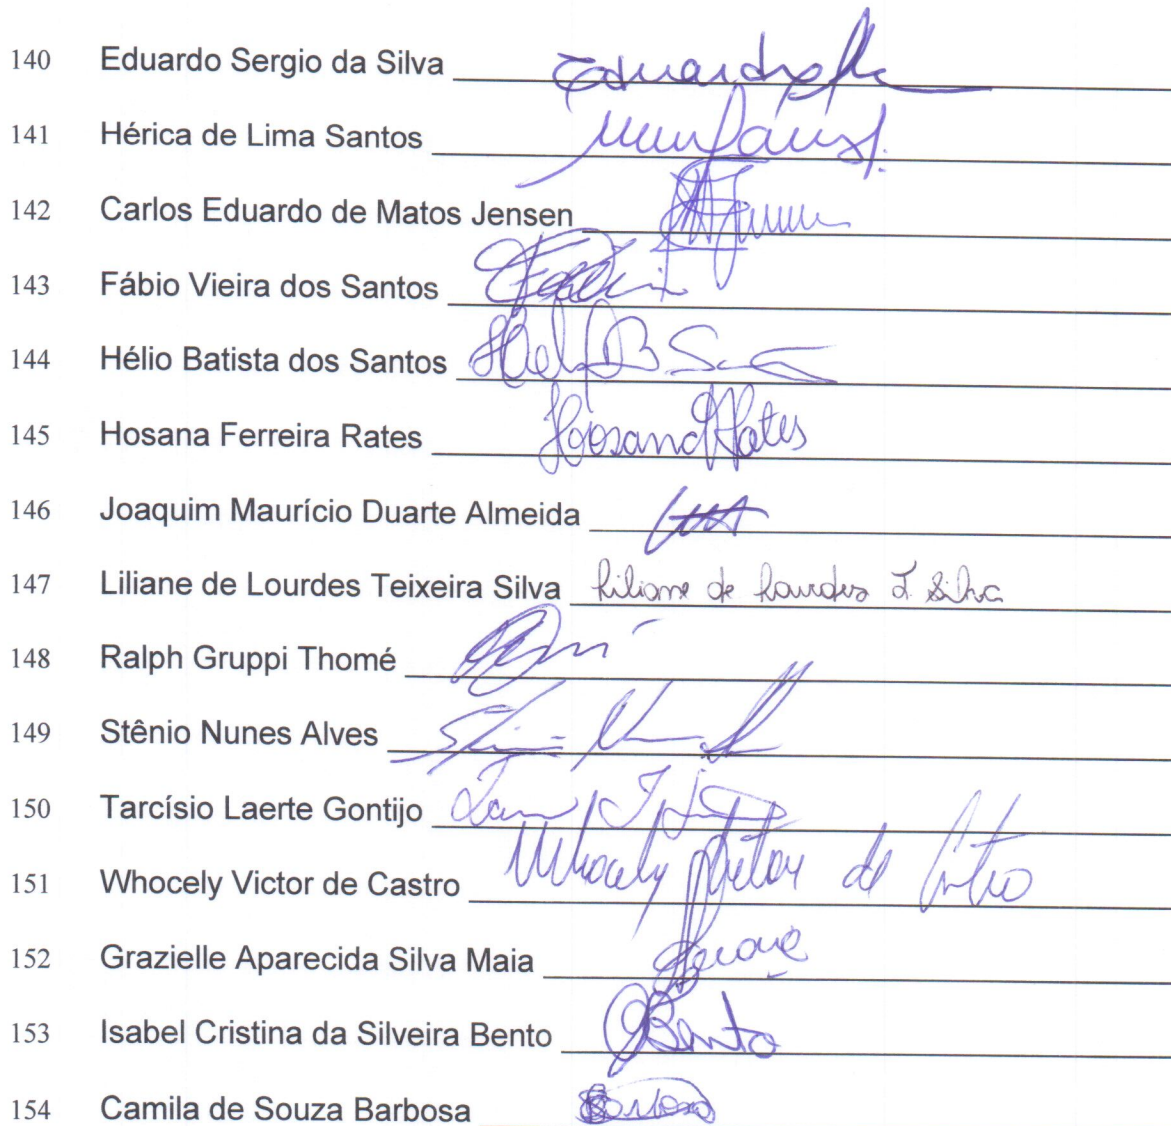 140 Eduardo Sergio da Silva Eduardo
141 Hérica de Lima Santos
142 Carlos Eduardo de Matos Jensen
143 Fábio Vieira dos Santos
144 Hélio Batista dos Santos
145 Hosana Ferreira Rates Hosana Rates
146 Joaquim Maurício Duarte Almeida
147 Liliane de Lourdes Teixeira Silva Liliane de Lourdes T Silva
148 Ralph Gruppi Thomé
149 Stênio Nunes Alves
150 Tarcísio Laerte Gontijo
151 Whocely Victor de Castro Whocely Victor de Castro
152 Grazielle Aparecida Silva Maia
153 Isabel Cristina da Silveira Bento Bento
154 Camila de Souza Barbosa Barbosa